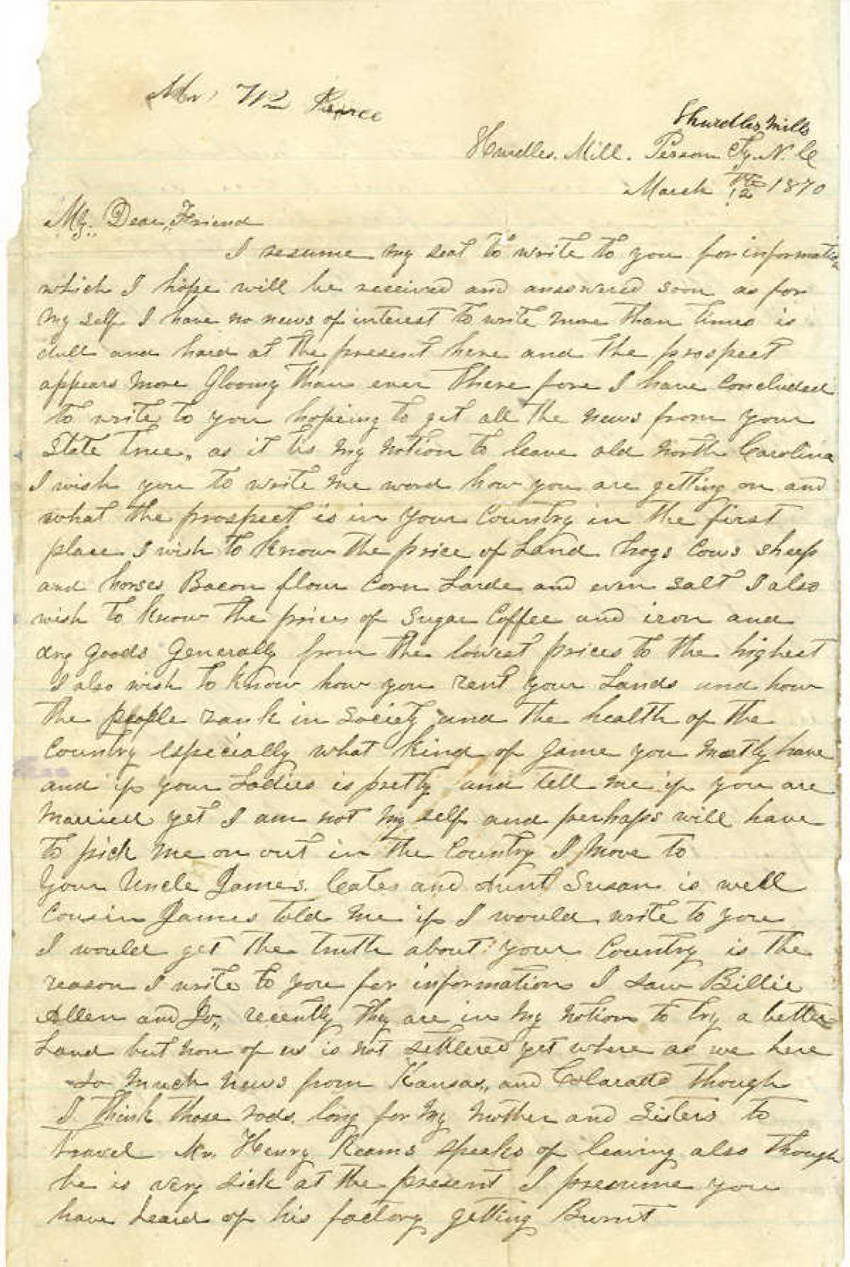 Mr. W2 Pearce
Hurdles Mills
Hurdles. Mill. Person Ty. N. C
March 12th 1870
My. Dear, Friend
I resume my seat to write to you for information
which I hope will be received and answered soon as for
my self I have no news of interest to write more than times is
dull and hard at the present here and the prospect
appears more Gloomy than ever there fore I have concluded
to write to you hopeing to get all the news from your
State true, as it tis my notion to leave old north Carolina
I wish you to write me word how you are getting on and
what the prospect is in your Country in the first
place I wish to know the price of Land hogs Cows sheep
and horses Bacon flour Corn Larde and even Salt I also
wish to know the prices of Sugar Coffee and iron and
dry Goods Generaly from the lowest prices to the highest
I also wish to know how you rent your Lands and how
the people rank in Society and the health of the
Country especially what kind of game you mostly have
and if your Ladies is pretty and tell me if you are
married yet I am not my self and perhaps will have
to pick me on out in the Country I move to
Your Uncle James. Cates and Aunt Susan is well
Cousin James told me if I would write to you
I would get the truth about your Country is the
reason I write to you for information I saw Billie
Allen and Jo,, recently they are in my notion to try a better
Land but non of us is not settlered yet where as we here
so much news from Kansas, and Colaratto though
I think those rods long for my mother and Sisters to
travel Mr. Henry Reams speaks of leaving also though
he is very sick at the present I presume you
have heard of his factory getting Burnt